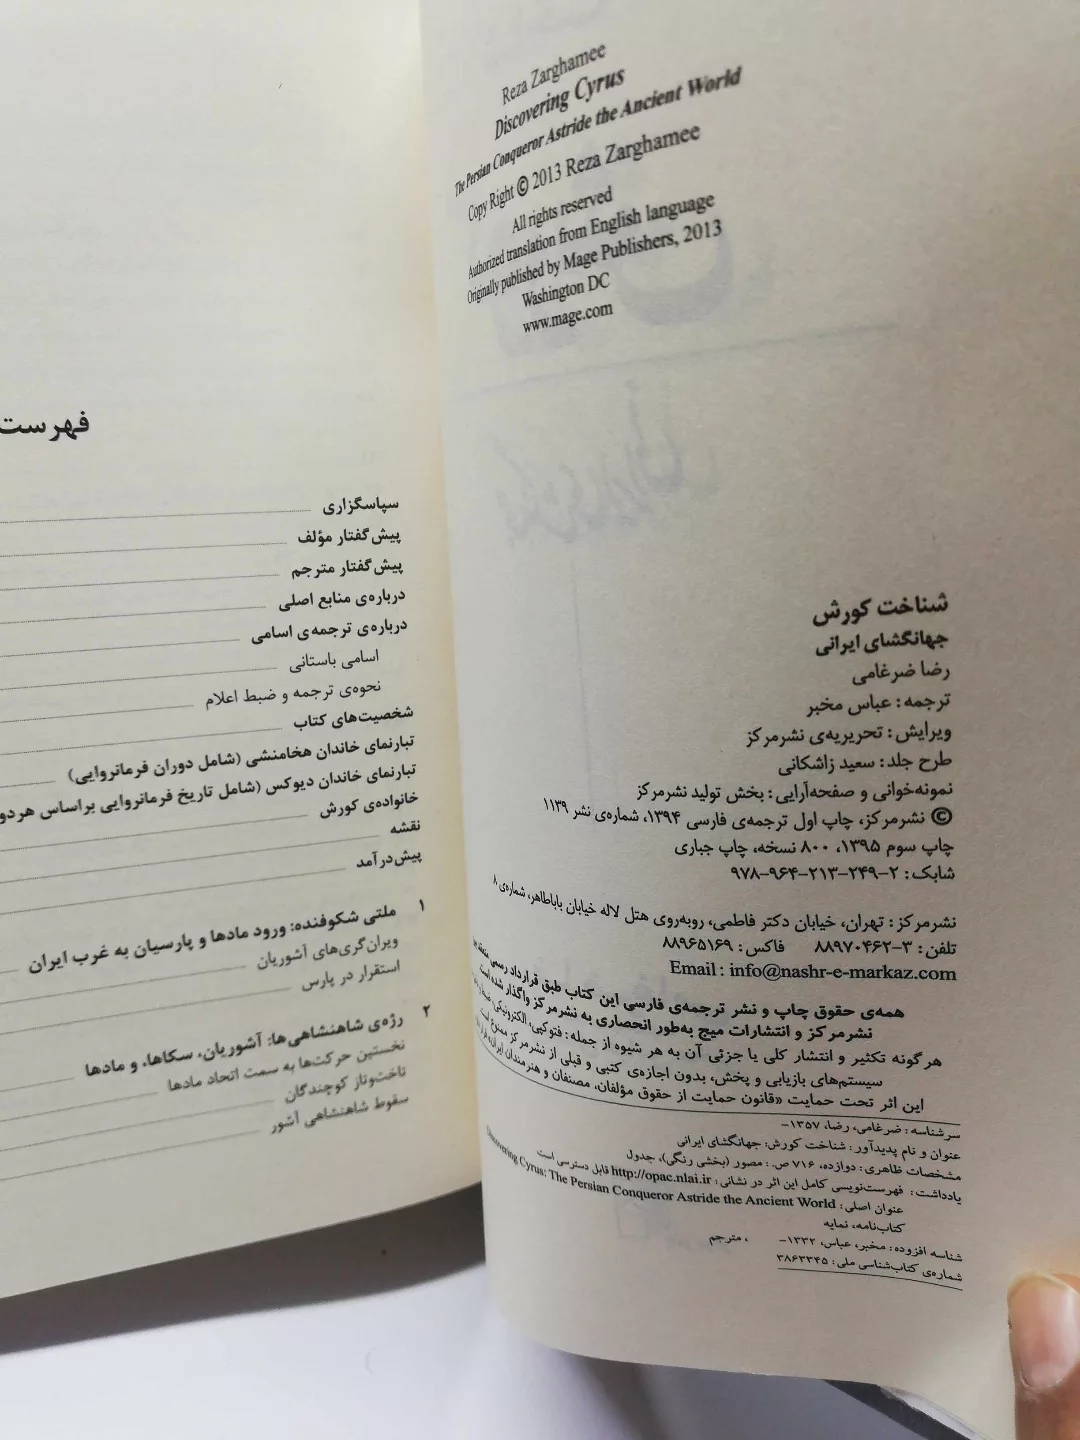 Reza Zarghamee
Discovering Cyrus
The Persian Conqueror Astride the Ancient World
Copy Right © 2013 Reza Zarghamee
All rights reserved
Authorized translation from English language
Originally published by Mage Publishers, 2013
Washington DC
www.mage.com
شناخت کورش
جهانگشای ایرانی
رضا ضرغامی
ترجمه: عباس مخبر
ویرایش: تحریریه‌ی نشرمرکز
طرح جلد: سعید زاشکانی
نمونه‌خوانی و صفحه‌آرایی: بخش تولید نشرمرکز
© نشرمرکز، چاپ اول ترجمه‌ی فارسی ۱۳۹۴، شماره‌ی نشر ۱۱۳۹
چاپ سوم ۱۳۹۵، ۸۰۰ نسخه، چاپ جباری
شابک: ۲-۲۴۹-۲۱۳-۹۶۴-۹۷۸
نشرمرکز: تهران، خیابان دکتر فاطمی، روبه‌روی هتل لاله خیابان باباطاهر، شماره‌ی ۸
تلفن: ۳-۸۸۹۷۰۴۶۲ فاکس: ۸۸۹۶۵۱۶۹
Email: info@nashr-e-markaz.com
همه‌ی حقوق چاپ و نشر ترجمه‌ی فارسی این کتاب طبق قرارداد رسمی منعقد بین
نشرمرکز و انتشارات میج به‌طور انحصاری به نشرمرکز واگذار شده است
هرگونه تکثیر و انتشار کلی یا جزئی آن به هر شیوه از جمله: فتوکپی، الکترونیکی،
سیستم‌های بازیابی و پخش، بدون اجازه‌ی کتبی و قبلی از نشرمرکز ممنوع است
این اثر تحت حمایت «قانون حمایت از حقوق مؤلفان، مصنفان و هنرمندان ایران» قرار
سرشناسه: ضرغامی، رضا، ۱۳۵۷-
عنوان و نام پدیدآور: شناخت کورش: جهانگشای ایرانی
مشخصات ظاهری: دوازده، ۷۱۶ ص.: مصور (بخشی رنگی)، جدول
یادداشت: فهرست‌نویسی کامل این اثر در نشانی: http://opac.nlai.ir قابل دسترسی است
عنوان اصلی: Discovering Cyrus: The Persian Conqueror Astride the Ancient World
کتاب‌نامه، نمایه
شناسه افزوده: مخبر، عباس، ۱۳۳۲- ، مترجم
شماره‌ی کتاب‌شناسی ملی: ۳۸۶۳۳۴۵
فهرست
سپاسگزاری
پیش‌گفتار مؤلف
پیش‌گفتار مترجم
درباره‌ی منابع اصلی
درباره‌ی ترجمه‌ی اسامی
اسامی باستانی
نحوه‌ی ترجمه و ضبط اعلام
شخصیت‌های کتاب
تبارنمای خاندان هخامنشی (شامل دوران فرمانروایی)
تبارنمای خاندان دیوکس (شامل تاریخ فرمانروایی براساس هردو
خانواده‌ی کورش
نقشه
پیش‌درآمد
۱ ملتی شکوفنده: ورود مادها و پارسیان به غرب ایران
ویران‌گری‌های آشوریان
استقرار در پارس
۲ رژه‌ی شاهنشاهی‌ها: آشوریان، سکاها، و مادها
نخستین حرکت‌ها به سمت اتحاد مادها
تاخت‌وتاز کوچندگان
سقوط شاهنشاهی آشور